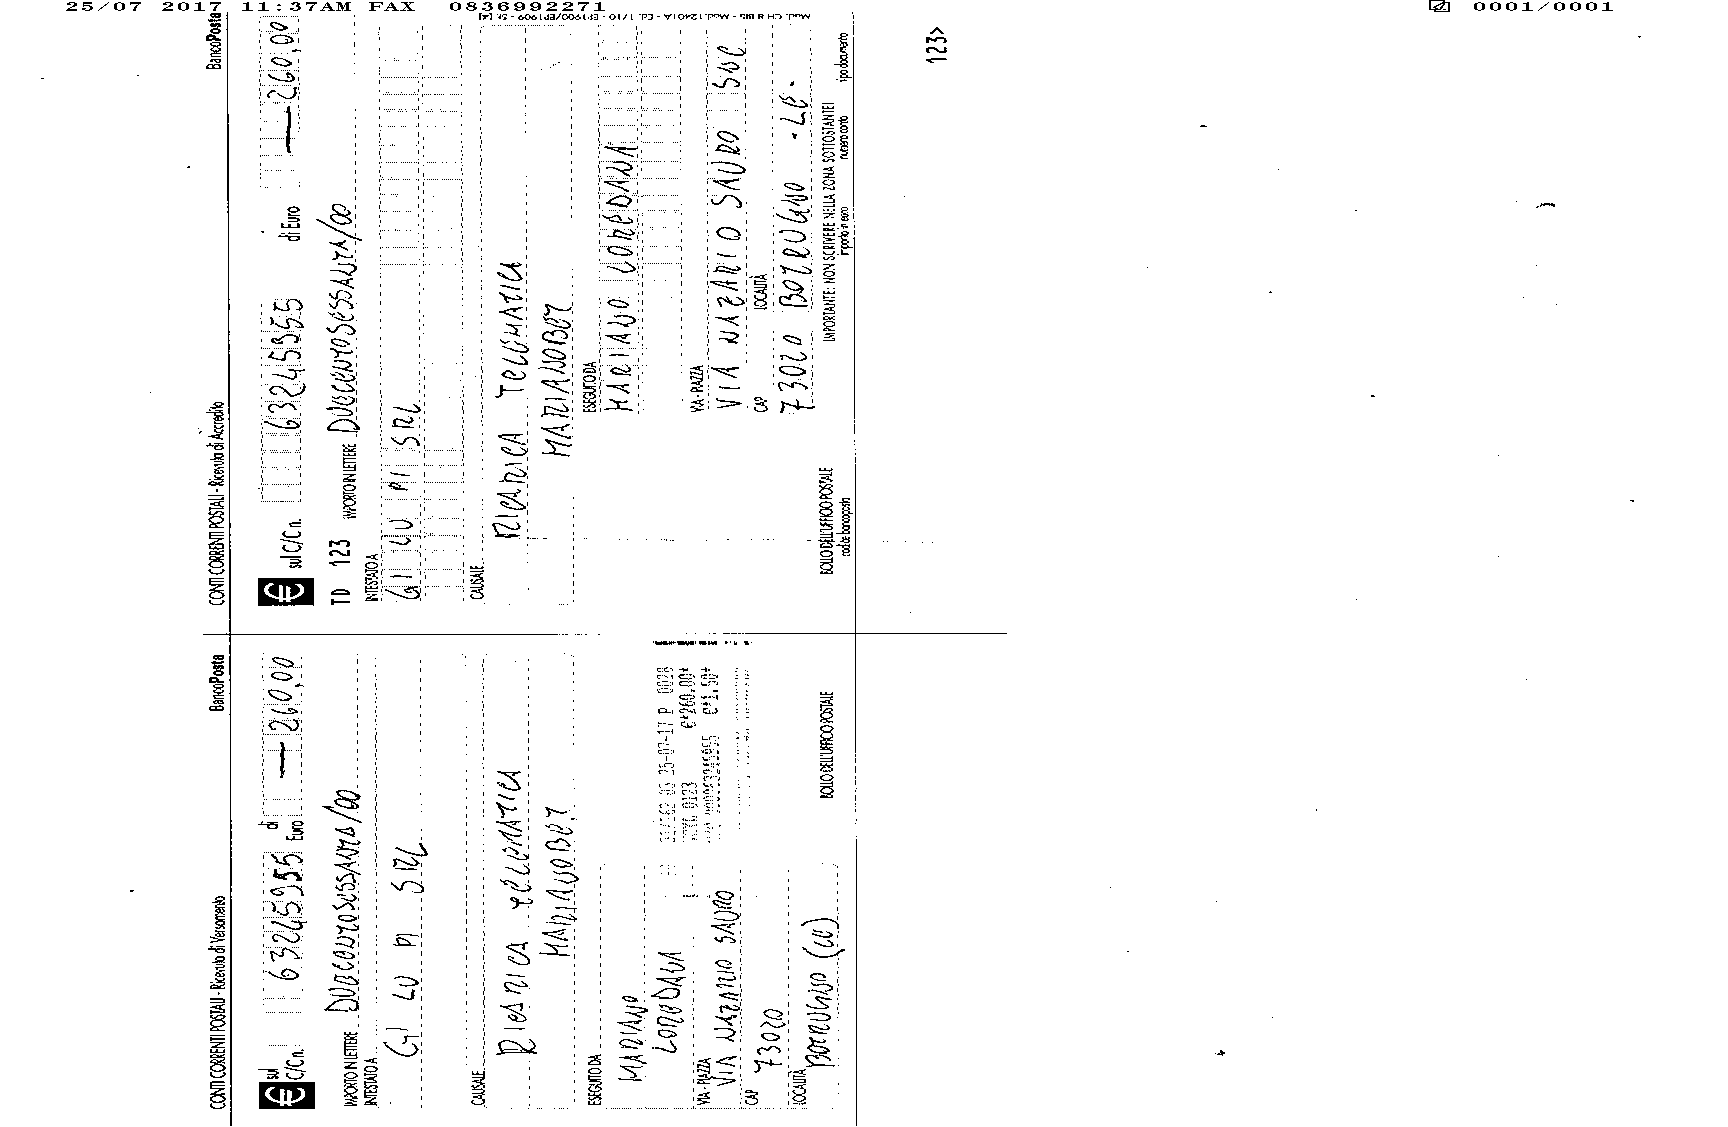 25/07 2017 11:37AM FAX 0836992271 0001/0001
CONTI CORRENTI POSTALI - Ricevuta di Versamento BancoPosta
€ sul C/C n. 63245955 di Euro 260,00
IMPORTO IN LETTERE DUECENTOSESSANTA/00
INTESTATO A
GI LU PI SRL
CAUSALE
RICARICA TELEMATICA
MARIANOBET
ESEGUITO DA
MARIANO
LOREDANA
VIA - PIAZZA
VIA NAZARIO SAURO
CAP
73020
LOCALITÀ
BOTRUGNO (LE)
25-07-17 P
0123 €*260,00*
€*1,50*
BOLLO DELL'UFFICIO POSTALE
CONTI CORRENTI POSTALI - Ricevuta di Accredito BancoPosta
€ sul C/C n. 63245955 di Euro 260,00
TD 123 IMPORTO IN LETTERE DUECENTOSESSANTA/00
INTESTATO A
GI LU PI SRL
CAUSALE
RICARICA TELEMATICA
MARIANOBET
Mod. CH 8 bis
ESEGUITO DA
MARIANO LOREDANA
VIA - PIAZZA
VIA NAZARIO SAURO SNC
CAP LOCALITÀ
73020 BOTRUGNO - LE -
BOLLO DELL'UFFICIO POSTALE
codice bancoposta
IMPORTANTE: NON SCRIVERE NELLA ZONA SOTTOSTANTE!
importo in euro numero conto tipo documento
123>